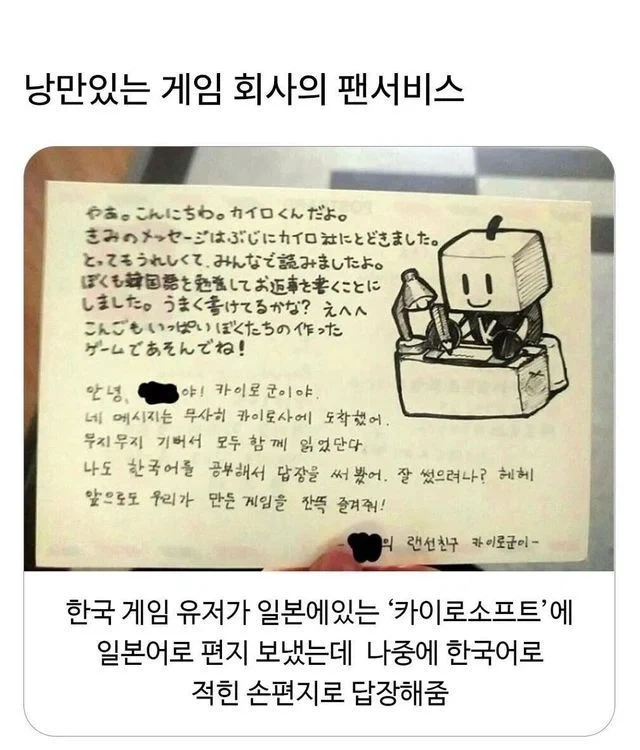 낭만있는 게임 회사의 팬서비스
やあ。こんにちわ。カイロくんだよ。
きみのメッセージはぶじにカイロ社にとどきました。
とってもうれしくて、みんなで読みましたよ。
ぼくも韓国語を勉強してお返事を書くことに
しました。うまく書けてるかな？えへへ
こんごもいっぱいぼくたちの作った
ゲームであそんでね！
안녕, 야! 카이로군이야.
네 메시지는 무사히 카이로사에 도착했어.
무지무지 기뻐서 모두 함께 읽었단다.
나도 한국어를 공부해서 답장을 써 봤어. 잘 썼으려나? 헤헤
앞으로도 우리가 만든 게임을 잔뜩 즐겨줘!
- 의 랜선친구 카이로군이-
한국 게임 유저가 일본에있는 ‘카이로소프트’에
일본어로 편지 보냈는데 나중에 한국어로
적힌 손편지로 답장해줌